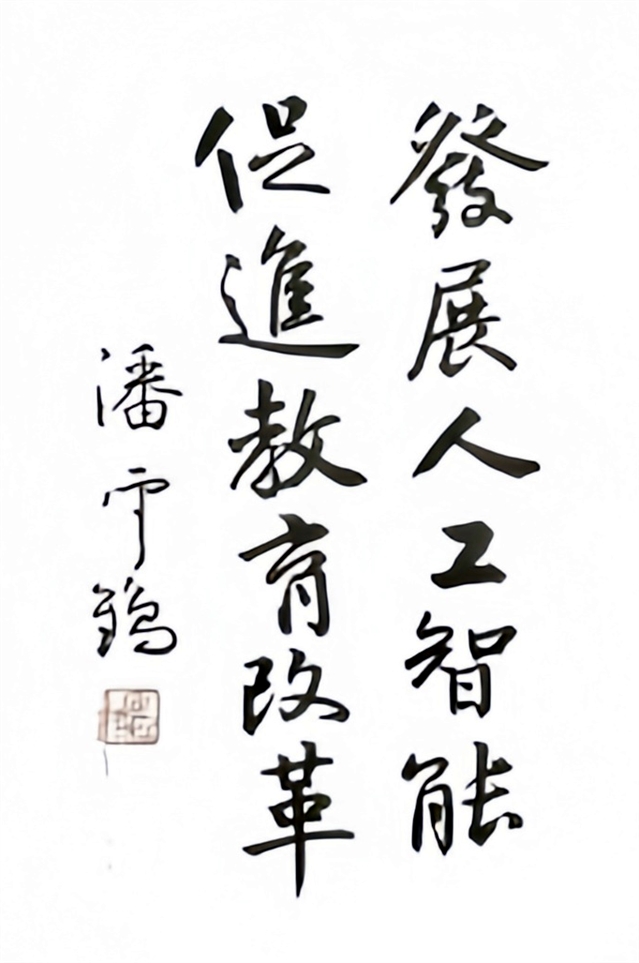 發展人工智能
促進教育改革
潘雲鶴